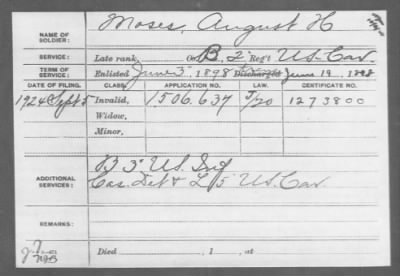 NAME OF SOLDIER: Moses, August H
SERVICE: Late rank, Co. B, 2 Reg't U.S. Cav.
TERM OF SERVICE: Enlisted June 3 1898 Discharged June 19, 1898
DATE OF FILING. CLASS. APPLICATION NO. LAW. CERTIFICATE NO.
1924 Sept 5 Invalid, 1506.637 1273800
Widow,
Minor,
ADDITIONAL SERVICES: B 3" U.S. Inf
Cas. Det & L 5" U.S. Cav.
REMARKS:
Died , 1 , at